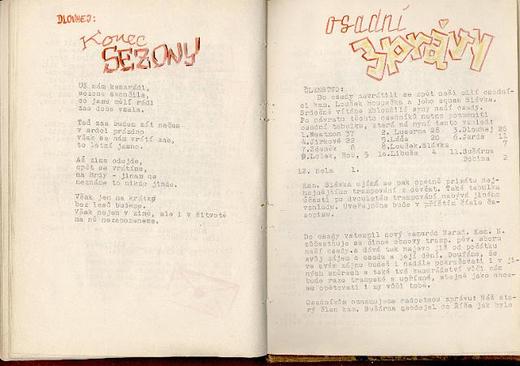 DLOUHEJ:
Konec
SEZONY
Už nám kamarádi,
sezona skončila,
co jsme měli rádi
zas doba vzala.
Teď zas budem žít sečas
v srdci prázdno
však se nám vrátí zas,
to letní jasno.
Až zima odejde,
opět se vrátíme,
na Brdy - jinam ne
neznáme to nikde jinde.
Však jen na krátko
bez lesů budeme,
Však nejen v zimě, ale i v životě
na ně nezapomeneme.
osadní
zprávy
ČLENSTVO:
Do osady navrátili se zpět naši milí osadní-
ci kam. Loušek houpačka a jeho squaw Slávka.
Srdečně vítáme zbloudilé syny naší osady.
Po návratu těchto osadníků nutno pozměnit
osadní tabulku, která má nyní tento vzhled:
1. Westmon 37 2. Lucerna 28 3. Dlouhej 26
4. Jirkove 22 5. Láda 20 6. Jarda 11
7. Zdenek 8 8. Loušek.Slávka 7
9. Lošek, Rou. 5 10. Libuša 4 11. Bušárna
Dobina 2
12. Hela 1.
Kam. Slávka ujímá se pak opětně primátu nej-
hodnějšího trampování z děvčat. Také tabulka
účasti po dvouletém trampování nabývá jiného
vzhledu. Uveřejněna bude v příštím čísle ča-
sopisu.
Do osady vstoupil nový kamarád Harad. Kam. H.
zúčastňuje se činně obnovy tramp. pěv. sboru
naší osady a dává tak najevo již od počátku
svůj zájem o osadu a její dění. Doufáme, že
ve svém zájmu bude i nadále pokračovati i v ji-
ných směrech a také tvé kamarádství vůči nám
bude ryze trampské a upřímné, stejně jako chce-
me opětovati i my vůči tobě.
Osadníkům oznamujeme radostnou zprávu: Náš sta-
rý člen kam. Bušárna zaodejel do Říše jak bylo